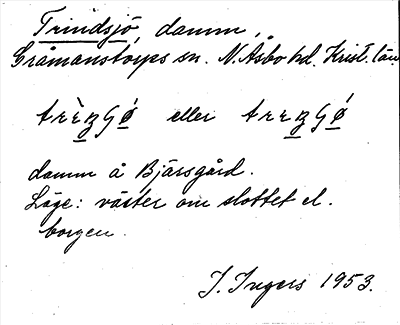 Trindsjö, damm,
Gråmanstorps sn. N. Åsbo hd. Krist. län
eller
damm å Bjärsgård.
Läge: väster om slottet el.
borgen.
I. Ingers 1953.